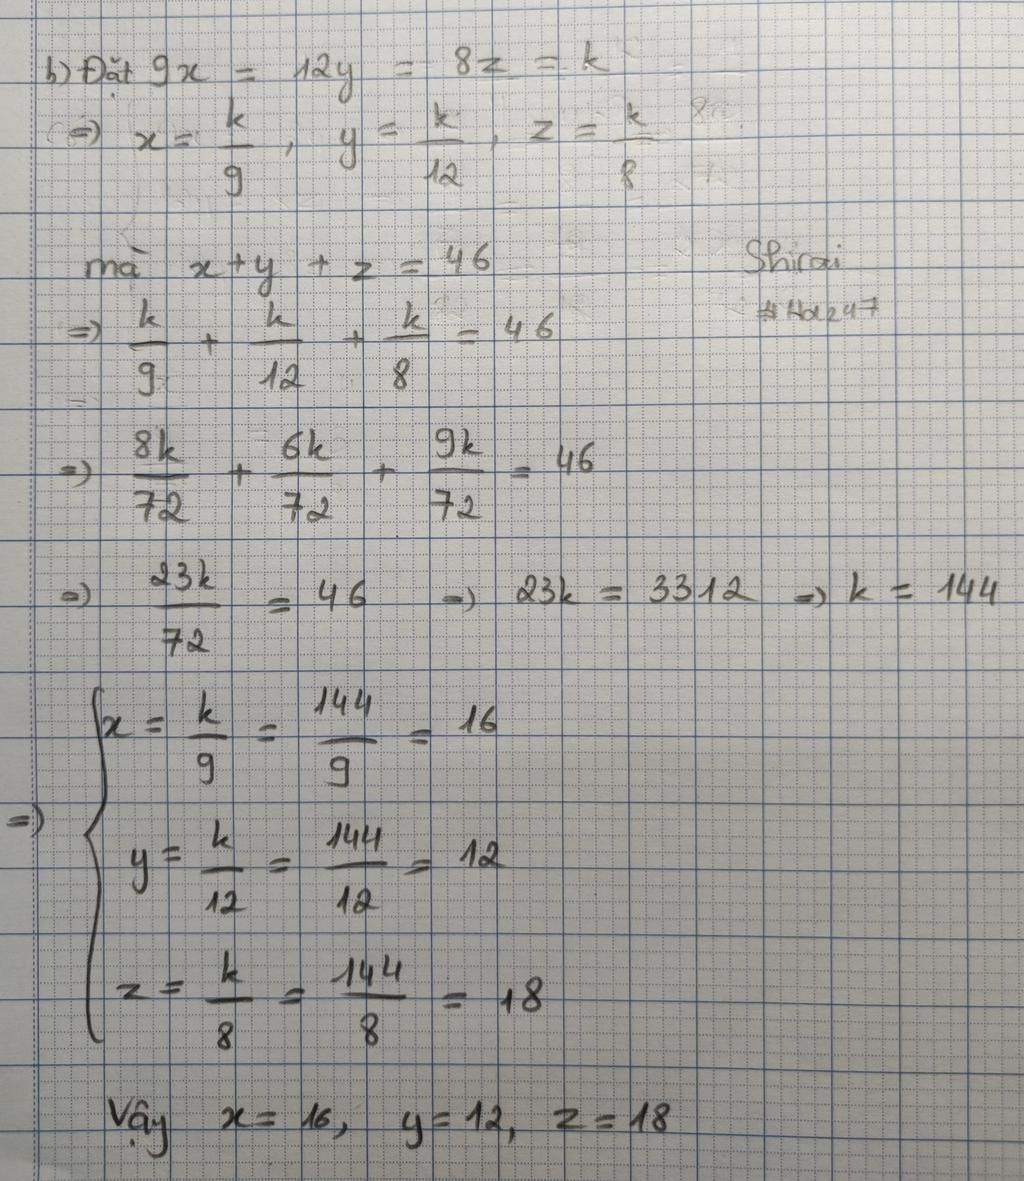 b) Đặt 9x = 12y = 8z = k
=> x = k/9, y = k/12, z = k/8
mà x + y + z = 46
Shirai
=> k/9 + k/12 + k/8 = 46
=> 8k/72 + 6k/72 + 9k/72 = 46
=> 23k/72 = 46 => 23k = 3312 => k = 144
=> { x = k/9 = 144/9 = 16
y = k/12 = 144/12 = 12
z = k/8 = 144/8 = 18
Vậy x = 16, y = 12, z = 18